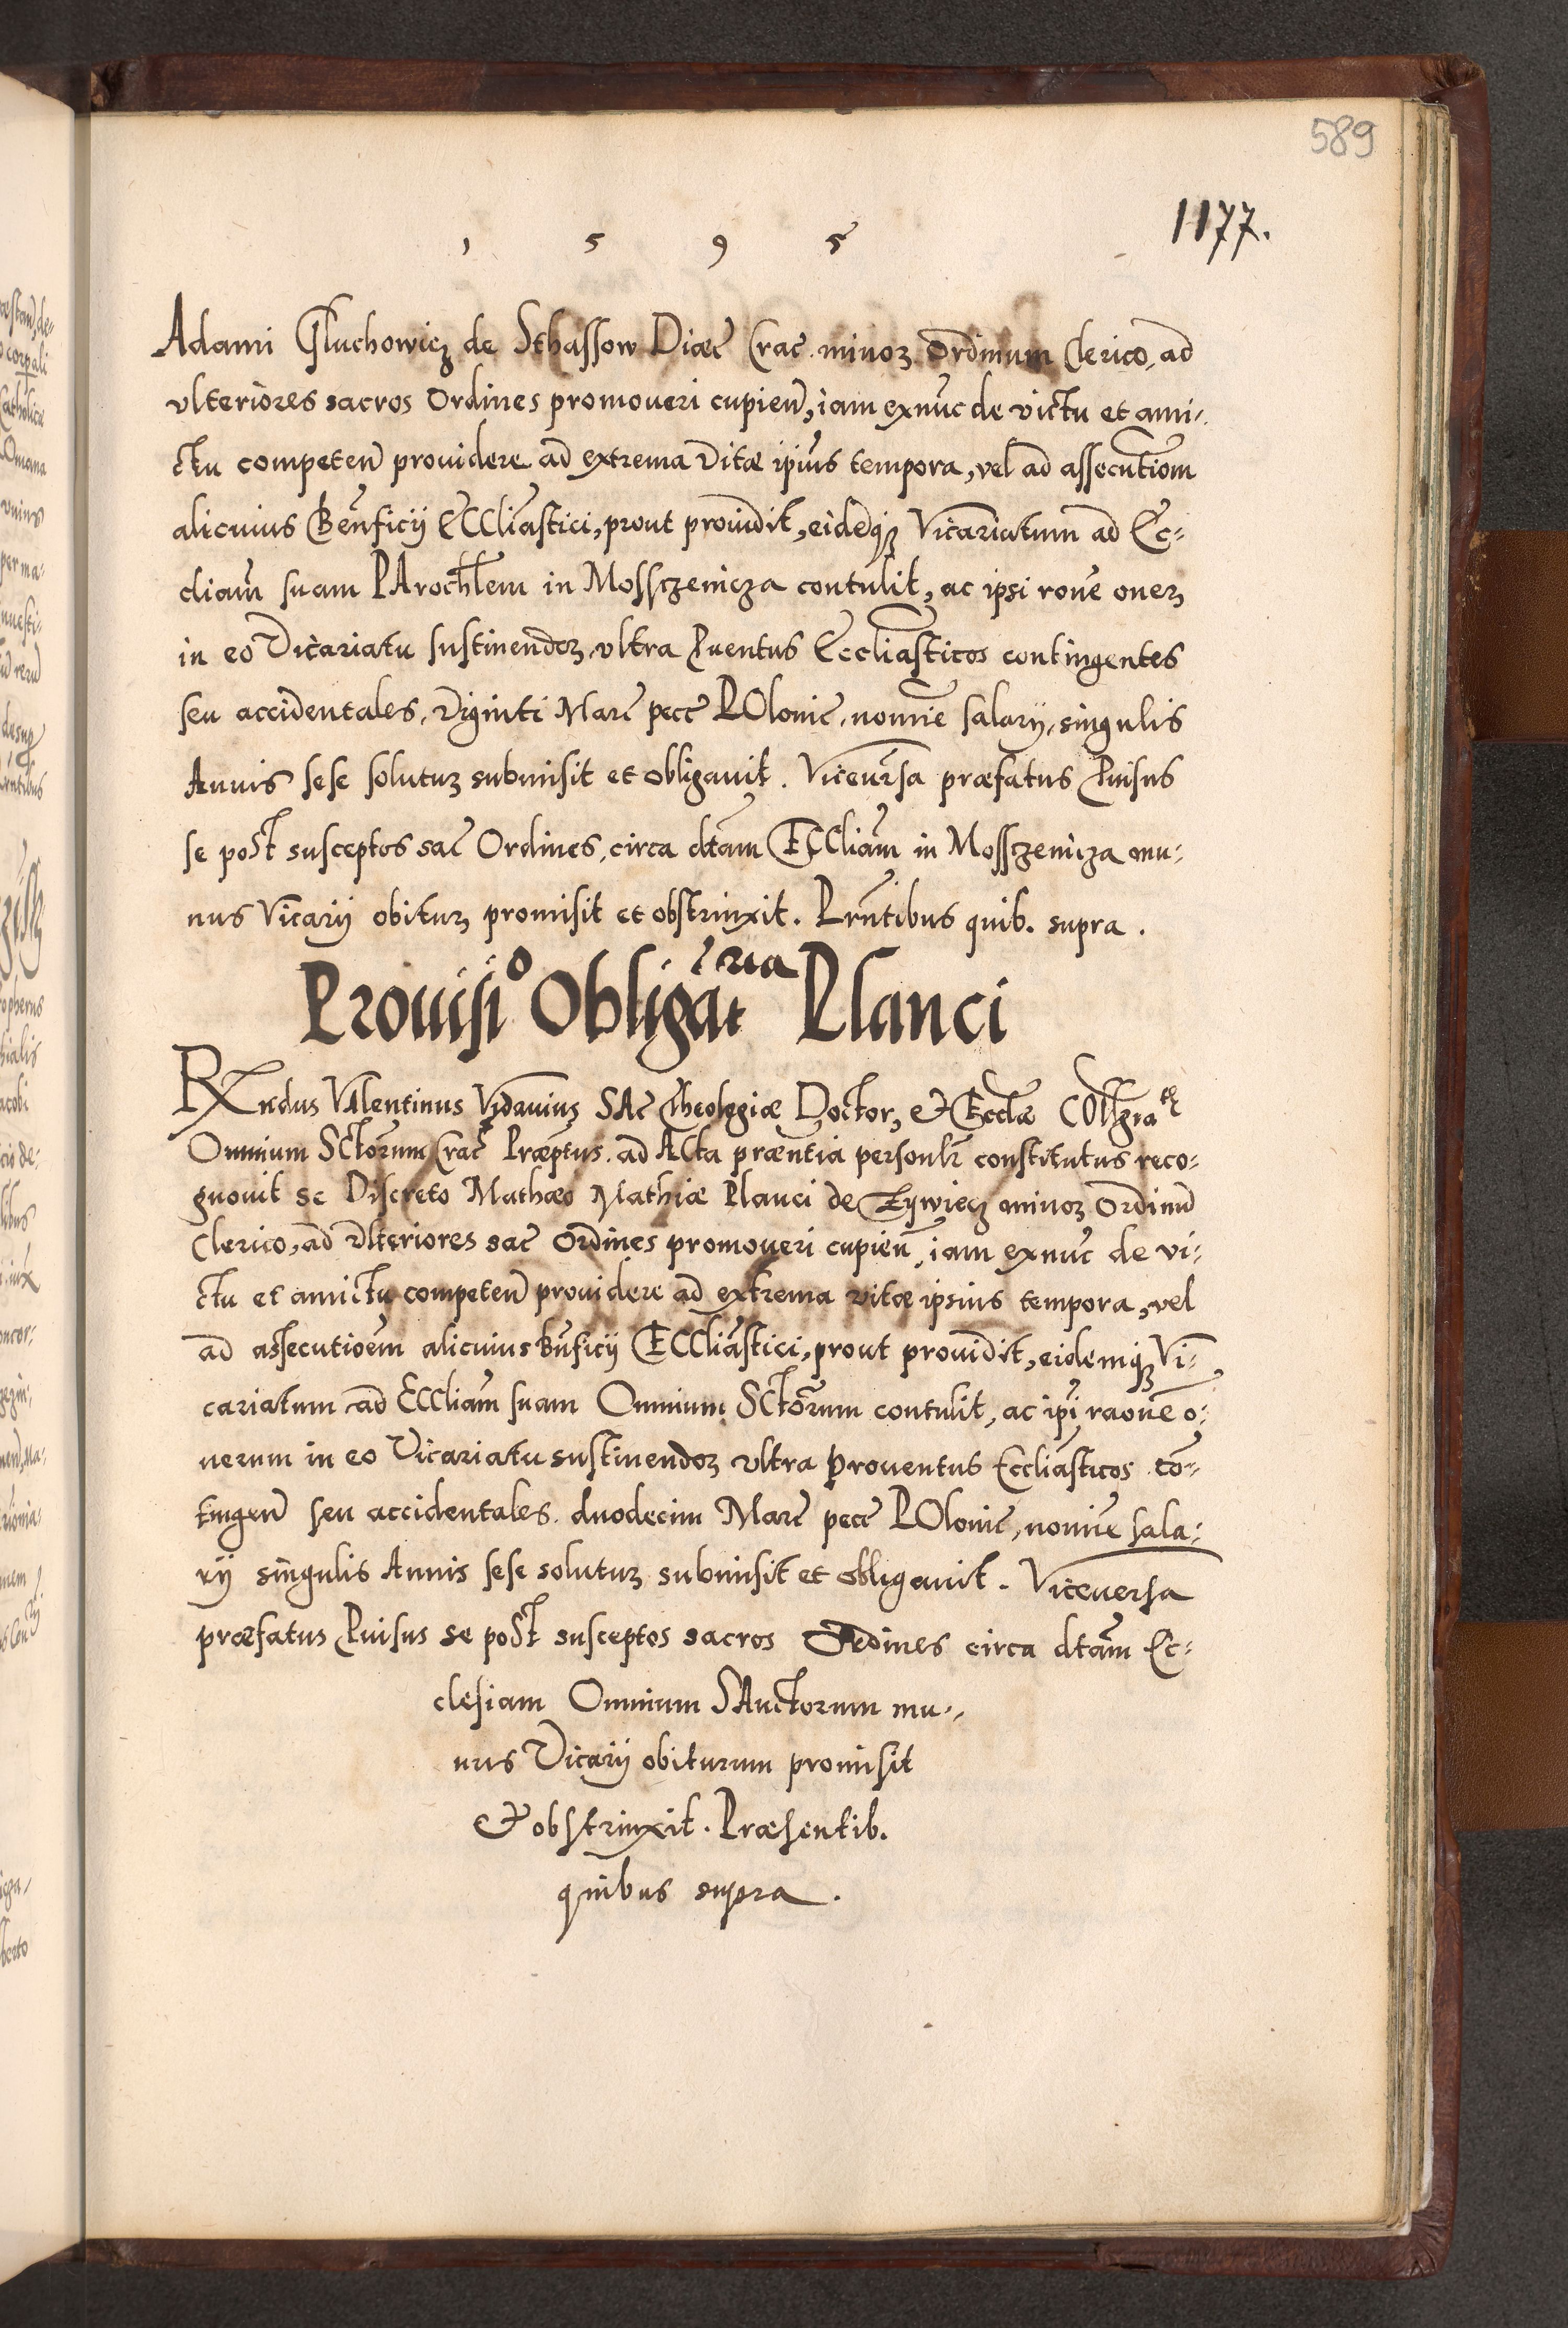 589
1177.
1 5 9 5
Adami Gluchowicz de Sthassow Diœc Crac. minoꝝ Ordinum Clerico, ad
vlteriores sacros Ordines promoueri cupien̄, iam exnūc de victu et ami-
ctu competen̄ prouidere ad extrema Vitæ ip̄ius tempora, vel ad assecutīom
alicuius Ben̄ficij ECCliāstici, prout prouīdit, eidēqꝫ Vicariatum ad Ec-
cliam̄ suam PArochl̄em in Mossczenicza contulit, ac ipsi rōne oneꝝ
in eo Vicariatu sustinendoꝝ, vltra Puentus Eccliāsticos contingentes
seu accidentales, Viginti Marc̄ pecc̄ POlonic̄, nomīe salarij, singulis
Annis sese solutuꝝ submisit et obligauit. Viceuersa præfatus Puisus
se post susceptos sac̄ Ordines, circa dtam̄ ECCliam̄ in Mossczenicza mu-
nus Vicarij obituꝝ promisit et obstrinxit. Prn̄tibus quib. supra.
Prouisi° Obligat̄ria Planci
Rx̄ndus VAlentinus Vidauiuꝫ SAc̄ Theologiæ Doctor, & Eccl̄æ COllgiatæ
Omnium SCtōrum Crac̄ Præp̄tus. ad ACta præn̄tia personlr̄ constitutus reco-
gnouit se Discreto Mathæo Mathiæ Planci de Zywiecz minoꝝ Ordinū
Clerico, ad Vlteriores sac̄ Ordines promoueri cupien̄, iam exnūc de vi-
ctu et amictu competen̄ prouidere ad extrema vitæ ipsius tempora, vel
ad assecutioēm alicuius Bn̄ficij ECCliāstici, prout prouīdit, eidemqꝫ Vi-
cariatum ad ECCliam̄ suam Omnium SCtōrum contulit, ac ip̄i raōne o-
nerum in eo Vicariatu sustinendoꝝ vltra Prouentus Eccliāsticos cō-
tingen̄ seu accidentales. duodecim Marc̄ pecc̄ POlonic̄, nomīe sala-
rij singulis Annis sese solutuꝝ submisit et obligauit. Viceuersa
præfatus Puisus se post susceptos sacros Ordines circa dtam̄ Ec-
clesiam Omnium SAnctorum mu-
nus Vicarij obiturum promisit
& obstrinxit. Præsentib.
quibus supra.